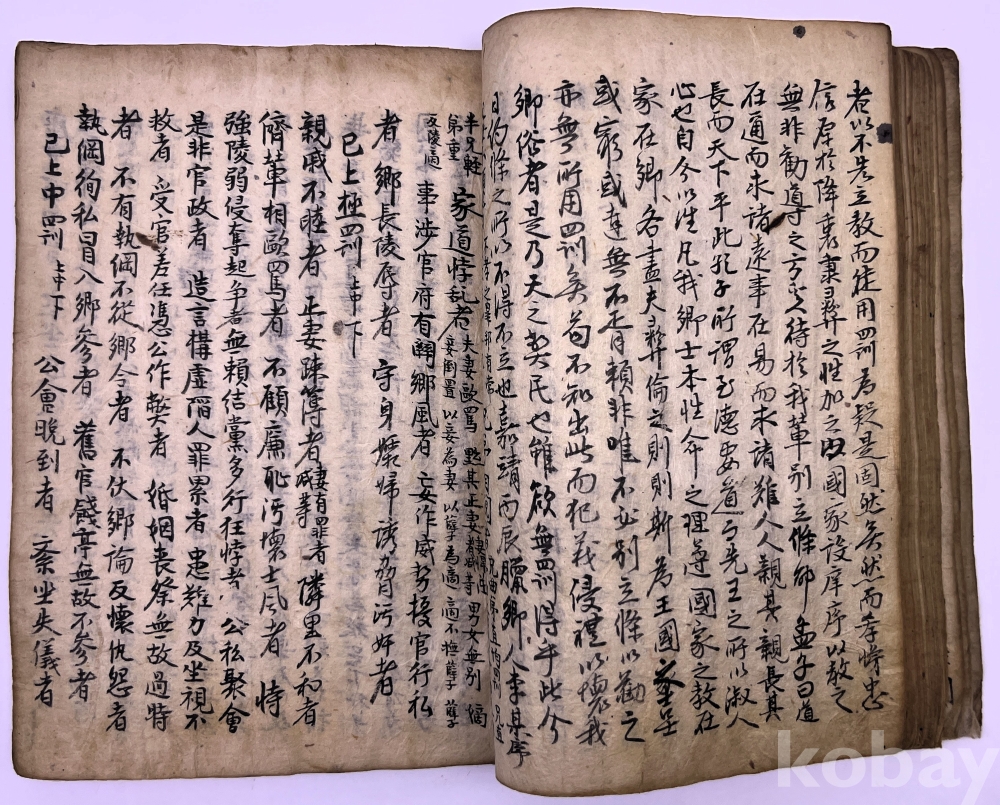 者以不先立教而徒用罰爲疑是固然矣然而孝悌忠
信原於降衷秉彛之性加之以國家設庠序以教之
無非勸導之方奚待於我輩別立條耶孟子曰道
在邇而求諸遠事在易而求諸難人人親其親長其
長而天下平此孔子所謂至德要道而先王之所以淑人
心也自今以往凡我鄉士本性命之理遵國家之教在
家在鄉各盡夫彛倫之則則斯爲王國
或窮或達無不胥賴非唯不必別立條以勸之
亦無所用罰矣苟不知出此而犯義侵禮以壞我
鄉俗者是乃天之獘民也雖欲無罰得乎此今
日約條之所以不得不立也嘉靖丙辰臘鄉人李某序
家道悖乱者 夫妻歐罵 黜其正妻 男女無別 嫡妾倒置 以妾爲妻 以孽爲嫡 嫡不撫孽 孽
反陵嫡 事涉官府有關鄉風者 妄作威勢擾官行私
者 鄉長陵辱者 守身孀婦誘脅污奸者
已上極罰 上中下
親戚不睦者 正妻踈簿者 妻有罪者减等 隣里不和者
儕輩相歐罵者 不顧廉恥污壞士風者 恃
強陵弱侵奪起爭者 無賴結黨多行狂悖者 公私聚會
是非官政者 造言構虛陷人罪累者 患難力及坐視不
救者 受官差任憑公作獘者 婚姻喪祭無故過時
者 不有執綱不從鄉令者 不伏鄉論反懷仇怨者
執綱徇私冒入鄉參者 舊官餞亭無故不參者
已上中罰 上中下 公會晚到者 紊坐失儀者